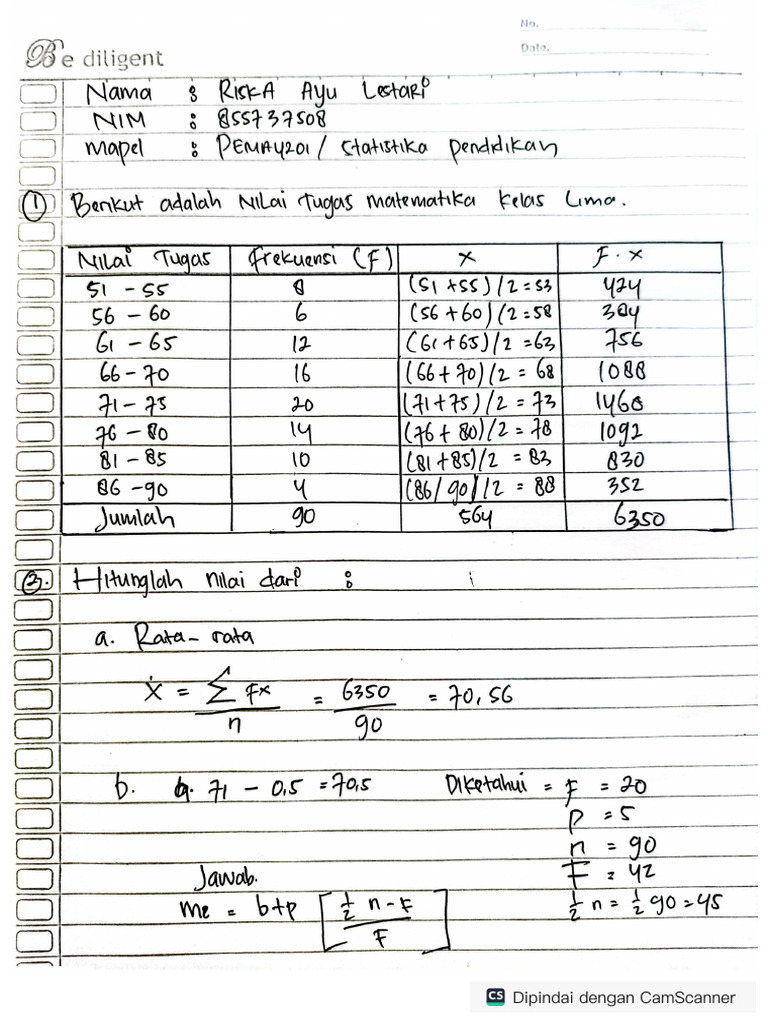 No.
Date.
Be diligent
Nama : RISKA Ayu LestaRi
NIM : 855737508
mapel : PEMA4201 / Statistika pendidikan
① Berikut adalah NiLai Tugas matematika kelas Lima.
NiLai Tugas frekuensi (F) x F . x
51 - 55 8 (51 + 55) / 2 = 53 424
56 - 60 6 (56 + 60) / 2 = 58 384
61 - 65 12 (61 + 65) / 2 = 63 756
66 - 70 16 (66 + 70) / 2 = 68 1088
71 - 75 20 (71 + 75) / 2 = 73 1460
76 - 80 14 (76 + 80) / 2 = 78 1092
81 - 85 10 (81 + 85) / 2 = 83 830
86 - 90 4 (86 / 90) / 2 = 88 352
Jumlah 90 564 6350
③. Hitunglah nilai dari :
a. Rata - rata
Ẋ = ∑ Fx / n = 6350 / 90 = 70,56
b. b. 71 - 0,5 = 70,5 Diketahui = F = 20
P = 5
n = 90
Jawab. F = 42
me = b + p [ ½ n - F / F ] ½ n = ½ 90 = 45
CS Dipindai dengan CamScanner